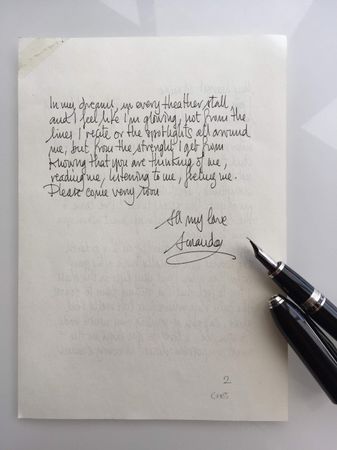 In my dreams, in every theather stall
and I feel like I'm glowing, not from the
lines I recite or the spotlights all around
me, but from the strenght I get from
knowing that you are thinking of me,
reading me, listening to me, feeling me.
Please come very soon
All my love
Amanda
2